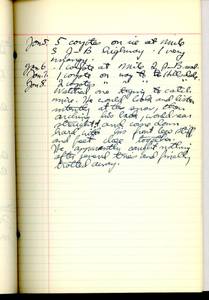 Jan 5 5 coyotes on ice at Mile
5 J-B highway. 1 very
Jan 6. 1 coyote at Mile 2 J-B
Jan 7. 1 coyote on way to
Jan 8. 2 coyotes " " " "
Watched one trying to catch
mice. He would look and listen
intently at the snow, then
arching his back, would rear
straight and come down
hard with his front legs stiff
and feet close together.
He apparently caught nothing
after several tries and finally
trotted away.